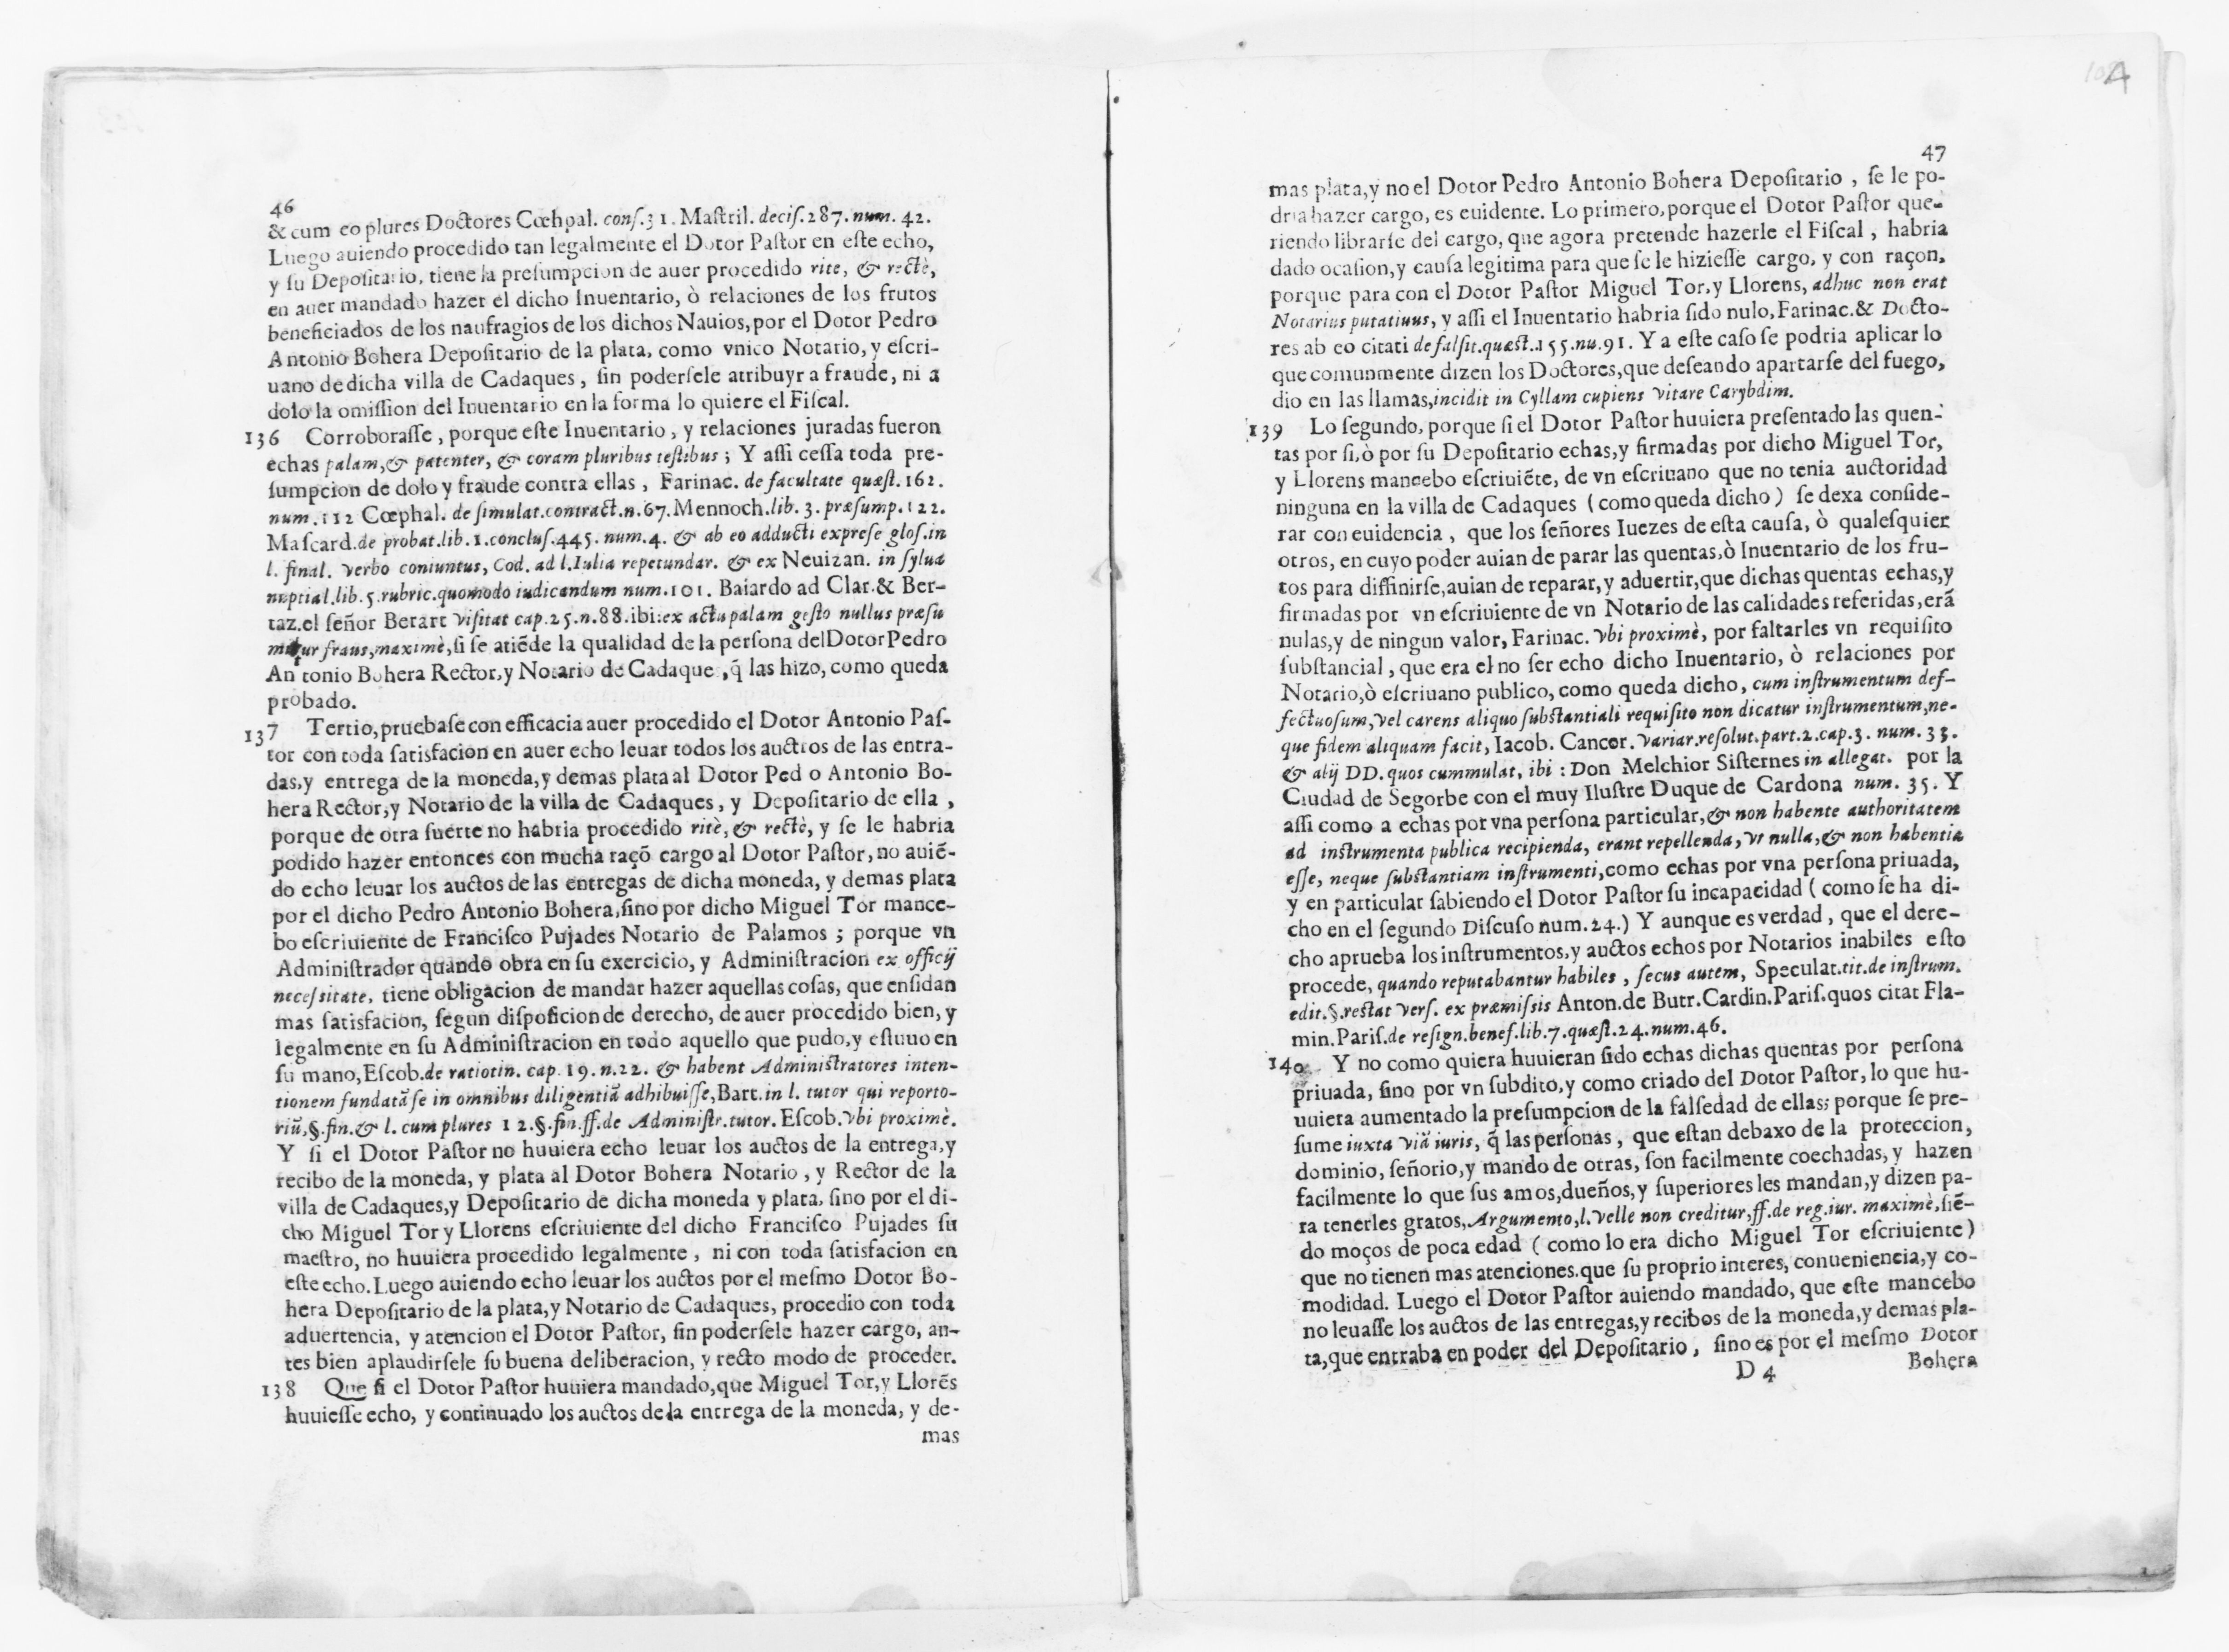 46
& cum eo plures Doctores Cœhpal. conſ.31. Maſtril. deciſ.287.num. 42.
Luego auiendo procedido tan legalmente el Dotor Paſtor en eſte echo,
y ſu Depoſitario, tiene la preſumpcion de auer procedido rite, & rectè,
en auer mandado hazer el dicho Inuentario, ò relaciones de los frutos
beneficiados de los naufragios de los dichos Nauios, por el Dotor Pedro
Antonio Bohera Depoſitario de la plata, como vnico Notario, y eſcri-
uano de dicha villa de Cadaques, ſin poderſele atribuyr a fraude, ni a
dolo la omiſſion del Inuentario en la forma lo quiere el Fiſcal.
136 Corroboraſſe, porque eſte Inuentario, y relaciones juradas fueron
echas palam, & patenter, & coram pluribus teſtibus; Y aſſi ceſſa toda pre-
ſumpcion de dolo y fraude contra ellas, Farinac. de facultate quæſt. 162.
num.112 Cœphal. de ſimulat.contract.n.67. Mennoch.lib. 3. præſump.122.
Maſcard.de probat.lib.1.concluſ.445. num.4. & ab eo adducti expreſe gloſ.in
l. final. verbo coniuntus, Cod. ad l.Iulia repetundar. & ex Neuizan. in ſylua
nuptial.lib.5.rubric.quomodo iudicandum num.101. Baiardo ad Clar.& Ber-
taz.el ſeñor Berart viſitat cap.25.n.88.ibi:ex actu palam geſto nullus præſu
mitur fraus,maximè,ſi ſe atiẽde la qualidad de la perſona del Dotor Pedro
An tonio Bohera Rector,y Notario de Cadaque ,q̃ las hizo, como queda
probado.
137 Tertio, pruebaſe con efficacia auer procedido el Dotor Antonio Paſ-
tor con toda ſatisfacion en auer echo leuar todos los auctos de las entra-
das,y entrega de la moneda,y demas plata al Dotor Ped o Antonio Bo-
hera Rector,y Notario de la villa de Cadaques, y Depoſitario de ella ,
porque de otra ſuerte no habria procedido ritè, & rectè, y ſe le habria
podido hazer entonces con mucha raçõ cargo al Dotor Paſtor, no auiẽ-
do echo leuar los auctos de las entregas de dicha moneda, y demas plata
por el dicho Pedro Antonio Bohera,ſino por dicho Miguel Tor mance-
bo eſcriuiente de Franciſco Pujades Notario de Palamos ; porque vn
Adminiſtrador quando obra en ſu exercicio, y Adminiſtracion ex officij
neceſsitate, tiene obligacion de mandar hazer aquellas coſas, que enſidan
mas ſatisfacion, ſegun diſpoſicion de derecho, de auer procedido bien, y
legalmente en ſu Adminiſtracion en todo aquello que pudo,y eſtuuo en
ſu mano, Eſcob.de ratiotin. cap. 19. n.22. & habent Adminiſtratores inten-
tionem fundatã ſe in omnibus diligentiã adhibuiſſe,Bart.in l. tutor qui reporto-
riũ,§.fin.& l. cum plures 12.§.fin.ff.de Adminiſtr.tutor. Eſcob.vbi proximè.
Y ſi el Dotor Paſtor no huuiera echo leuar los auctos de la entrega,y
recibo de la moneda, y plata al Dotor Bohera Notario , y Rector de la
villa de Cadaques,y Depoſitario de dicha moneda y plata, ſino por el di-
cho Miguel Tor y Llorens eſcriuiente del dicho Franciſco Pujades ſu
maeſtro, no huuiera procedido legalmente , ni con toda ſatisfacion en
eſte echo. Luego auiendo echo leuar los auctos por el meſmo Dotor Bo-
hera Depoſitario de la plata,y Notario de Cadaques, procedio con toda
aduertencia, y atencion el Dotor Paſtor, ſin poderſele hazer cargo, an-
tes bien aplaudirſele ſu buena deliberacion, y recto modo de proceder.
138 Que ſi el Dotor Paſtor huuiera mandado,que Miguel Tor,y Llorẽs
huuieſſe echo, y continuado los auctos de la entrega de la moneda, y de-
mas
4
47
mas plata,y no el Dotor Pedro Antonio Bohera Depoſitario , ſe le po-
dria hazer cargo, es euidente. Lo primero,porque el Dotor Paſtor que-
riendo librarſe del cargo, que agora pretende hazerle el Fiſcal , habria
dado ocaſion,y cauſa legitima para que ſe le hizieſſe cargo, y con raçon,
porque para con el Dotor Paſtor Miguel Tor,y Llorens, adhuc non erat
Notarius putatiuus, y aſſi el Inuentario habria ſido nulo, Farinac.& Docto-
res ab eo citati de falſit.quæſt.155.nu.91. Y a eſte caſo ſe podria aplicar lo
que comunmente dizen los Doctores,que deſeando apartarſe del fuego,
dio en las llamas,incidit in Cyllam cupiens vitare Carybdim.
139 Lo ſegundo, porque ſi el Dotor Paſtor huuiera preſentado las quen-
tas por ſi,ò por ſu Depoſitario echas,y firmadas por dicho Miguel Tor,
y Llorens mancebo eſcriuiẽte, de vn eſcriuano que no tenia auctoridad
ninguna en la villa de Cadaques (como queda dicho) ſe dexa conſide-
rar con euidencia , que los ſeñores Iuezes de eſta cauſa, ò qualeſquier
otros, en cuyo poder auian de parar las quentas,ò Inuentario de los fru-
tos para diffinirſe,auian de reparar, y aduertir,que dichas quentas echas,y
firmadas por vn eſcriuiente de vn Notario de las calidades referidas, erã
nulas,y de ningun valor, Farinac. vbi proximè, por faltarles vn requiſito
ſubſtancial , que era el no ſer echo dicho Inuentario, ò relaciones por
Notario,ò eſcriuano publico, como queda dicho, cum inſtrumentum def-
fectuoſum, vel carens aliquo ſubſtantiali requiſito non dicatur inſtrumentum,ne-
que fidem aliquam facit, Iacob. Cancer. variar.reſolut.part.2.cap.3. num. 33.
& alij DD. quos cummulat, ibi : Don Melchior Siſternes in allegat. por la
Ciudad de Segorbe con el muy Iluſtre Duque de Cardona num. 35. Y
aſſi como a echas por vna perſona particular, & non habente authoritatem
ad inſtrumenta publica recipienda, erant repellenda, vt nulla, & non habentia
eſſe, neque ſubſtantiam inſtrumenti,como echas por vna perſona priuada,
y en particular ſabiendo el Dotor Paſtor ſu incapacidad ( como ſe ha di-
cho en el ſegundo Diſcuſo num.24.) Y aunque es verdad , que el dere-
cho aprueba los inſtrumentos,y auctos echos por Notarios inabiles eſto
procede, quando reputabantur habiles , ſecus autem, Speculat.tit.de inſtrum.
edit.§.reſtat verſ. ex præmiſsis Anton.de Butr.Cardin.Pariſ.quos citat Fla-
min.Pariſ.de reſign.benef.lib.7.quæſt.24.num.46.
140 Y no como quiera huuieran ſido echas dichas quentas por perſona
priuada, ſino por vn ſubdito,y como criado del Dotor Paſtor, lo que hu-
uuiera aumentado la preſumpcion de la falſedad de ellas; porque ſe pre-
ſume iuxta viã iuris, q̃ las perſonas , que eſtan debaxo de la proteccion,
dominio, ſeñorio,y mando de otras, ſon facilmente coechadas, y hazen
facilmente lo que ſus amos,dueños,y ſuperiores les mandan,y dizen pa-
ra tenerles gratos, Argumento,l.velle non creditur,ff.de reg.iur. maximè,ſiẽ-
do moços de poca edad ( como lo era dicho Miguel Tor eſcriuiente)
que no tienen mas atenciones.que ſu proprio interes, conueniencia,y co-
modidad. Luego el Dotor Paſtor auiendo mandado, que eſte mancebo
no leuaſſe los auctos de las entregas,y recibos de la moneda,y demas pla-
ta,que entraba en poder del Depoſitario , ſino es por el meſmo Dotor
D 4 Bohera